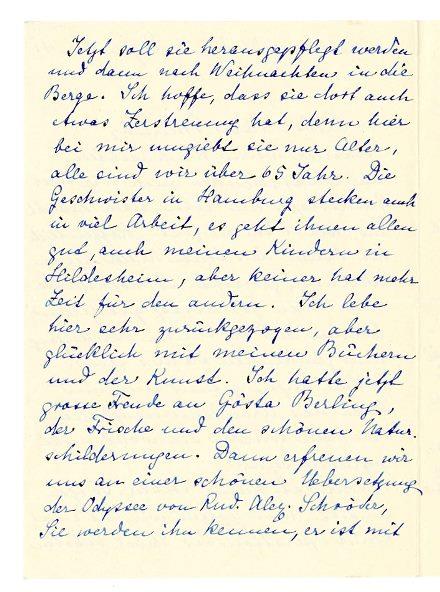 Jetzt soll sie herausgepflegt werden
und dann nach Weihnachten in die
Berge. Ich hoffe, dass sie dort auch
etwas Zerstreuung hat, denn hier
bei mir umgiebt sie nur Alter,
alle sind wir über 65 Jahr. Die
Geschwister in Hamburg stecken auch
in viel Arbeit, es geht ihnen allen
gut, auch meinen Kindern in
Hildesheim, aber keiner hat mehr
Zeit für den andern. Ich lebe
hier sehr zurückgezogen, aber
glücklich mit meinen Büchern
und der Kunst. Ich hatte jetzt
grosse Freude an Gösta Berling,
der Frische und den schönen Natur.
schilderungen. Dann erfreuen wir
uns an einer schönen Uebersetzung
der Odyssee von Rud. Alex. Schröder,
Sie werden ihn kennen, er ist mit